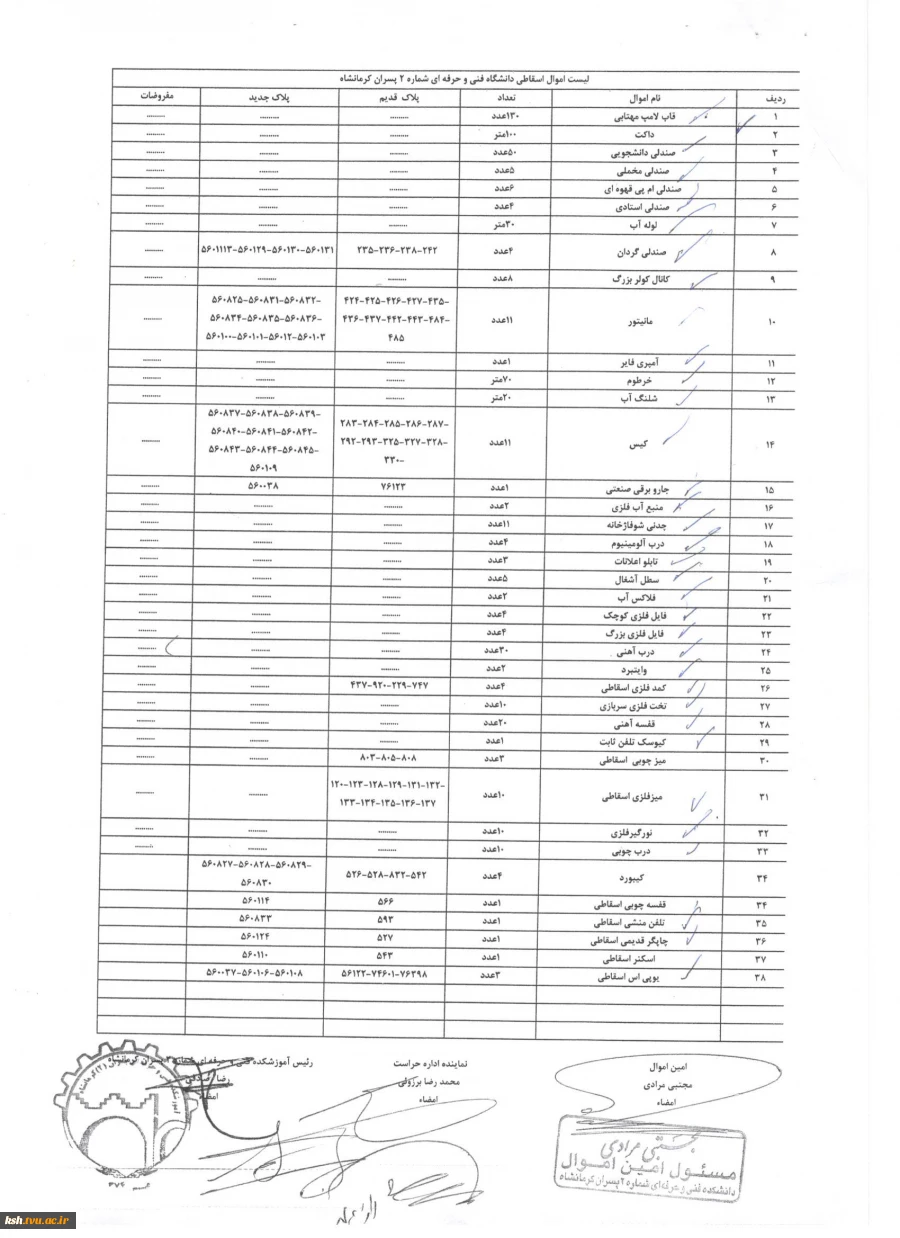 لیست اموال اسقاطی دانشگاه فنی و حرفه ای شماره ۲ پسران کرمانشاه
ردیف نام اموال تعداد پلاک قدیم پلاک جدید مفروضات
۱ قاب لامپ مهتابی ۱۳۰عدد ......... ......... .........
۲ داکت ۱۰۰متر ......... ......... .........
۳ صندلی دانشجویی ۵۰عدد ......... ......... .........
۴ صندلی مخملی ۵عدد ......... ......... .........
۵ صندلی ام پی قهوه ای ۶عدد ......... ......... .........
۶ صندلی استادی ۴عدد ......... ......... .........
۷ لوله آب ۳۰متر ......... ......... .........
۸ صندلی گردان ۴عدد ۲۳۵-۲۳۶-۲۳۸-۲۴۲ ۵۶۰۱۱۱۳-۵۶۰۱۲۹-۵۶۰۱۳۰-۵۶۰۱۳۱ .........
۹ کانال کولر بزرگ ۸عدد ......... ......... .........
۴۲۴-۴۲۵-۴۲۶-۴۲۷-۴۳۵- ۵۶۰۸۲۵-۵۶۰۸۳۱-۵۶۰۸۳۲-
۱۰ مانیتور ۱۱عدد ۴۳۶-۴۳۷-۴۴۲-۴۴۳-۴۸۴- ۵۶۰۸۳۴-۵۶۰۸۳۵-۵۶۰۸۳۶- .........
۴۸۵ ۵۶۰۱۰۰-۵۶۰۱۰۱-۵۶۰۱۲-۵۶۰۱۰۳
۱۱ آمپری فایر ۱عدد ......... ......... .........
۱۲ خرطوم ۷۰متر ......... ......... .........
۱۳ شلنگ آب ۲۰متر ......... ......... .........
۵۶۰۸۳۷-۵۶۰۸۳۸-۵۶۰۸۳۹-
۲۸۳-۲۸۴-۲۸۵-۲۸۶-۲۸۷- ۵۶۰۸۴۰-۵۶۰۸۴۱-۵۶۰۸۴۲-
۱۴ کیس ۱۱عدد ۲۹۲-۲۹۳-۳۲۵-۳۲۷-۳۲۸- ۵۶۰۸۴۳-۵۶۰۸۴۴-۵۶۰۸۴۵- .........
۳۳۰- ۵۶۰۱۰۹
۱۵ جارو برقی صنعتی ۱عدد ۷۶۱۲۳ ۵۶۰۰۳۸ .........
۱۶ منبع آب فلزی ۲عدد ......... ......... .........
۱۷ چدنی شوفاژخانه ۱۱عدد ......... ......... .........
۱۸ درب آلومینیوم ۴عدد ......... ......... .........
۱۹ تابلو اعلانات ۳عدد ......... ......... .........
۲۰ سطل آشغال ۵عدد ......... ......... .........
۲۱ فلاکس آب ۲عدد ......... ......... .........
۲۲ فایل فلزی کوچک ۴عدد ......... ......... .........
۲۳ فایل فلزی بزرگ ۴عدد ......... ......... .........
۲۴ درب آهنی ۳۰عدد ......... ......... .........
۲۵ وایتبرد ۲عدد ......... ......... .........
۲۶ کمد فلزی اسقاطی ۴عدد ۴۳۷-۹۲۰-۲۲۹-۷۴۷ ......... .........
۲۷ تخت فلزی سربازی ۱۰عدد ......... ......... .........
۲۸ قفسه آهنی ۲۰عدد ......... ......... .........
۲۹ کیوسک تلفن ثابت ۱عدد ......... ......... .........
۳۰ میز چوبی اسقاطی ۳عدد ۸۰۳-۸۰۵-۸۰۸ ......... .........
۱۲۰-۱۲۳-۱۲۸-۱۲۹-۱۳۱-۱۳۲-
۳۱ میزفلزی اسقاطی ۱۰عدد ۱۳۳-۱۳۴-۱۳۵-۱۳۶-۱۳۷ ......... .........
۳۲ نورگیرفلزی ۱۰عدد ......... ......... .........
۳۳ درب چوبی ۱۰عدد ......... ......... .........
۵۶۰۸۲۷-۵۶۰۸۲۸-۵۶۰۸۲۹-
۳۴ کیبورد ۴عدد ۵۲۶-۵۲۸-۸۳۲-۵۴۲ ۵۶۰۸۳۰
۳۴ قفسه چوبی اسقاطی ۱عدد ۵۶۶ ۵۶۰۱۱۴
۳۵ تلفن منشی اسقاطی ۱عدد ۵۹۳ ۵۶۰۸۳۳
۳۶ چاپگر قدیمی اسقاطی ۱عدد ۵۲۷ ۵۶۰۱۲۴
۳۷ اسکنر اسقاطی ۱عدد ۵۴۳ ۵۶۰۱۱۰
۳۸ یوپی اس اسقاطی ۳عدد ۵۶۱۲۲-۷۴۶۰۱-۷۶۲۹۸ ۵۶۰۰۳۷-۵۶۰۱۰۶-۵۶۰۱۰۸
امین اموال نماینده اداره حراست رئیس آموزشکده فنی و حرفه ای شماره ۲ پسران کرمانشاه
مجتبی مرادی محمد رضا برزوئی رضا صادقی
امضاء امضاء امضاء
مجتبی مرادی
مسئول امین اموال
دانشکده فنی و حرفه ای شماره ۲ پسران کرمانشاه
ksh.tvu.ac.ir